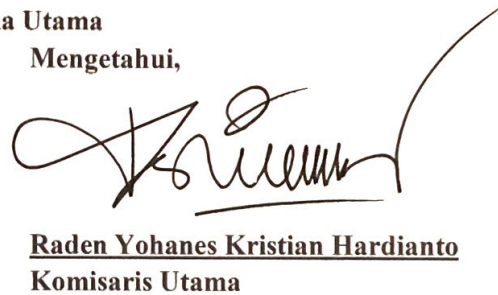 a Utama
Mengetahui,
Raden Yohanes Kristian Hardianto
Komisaris Utama